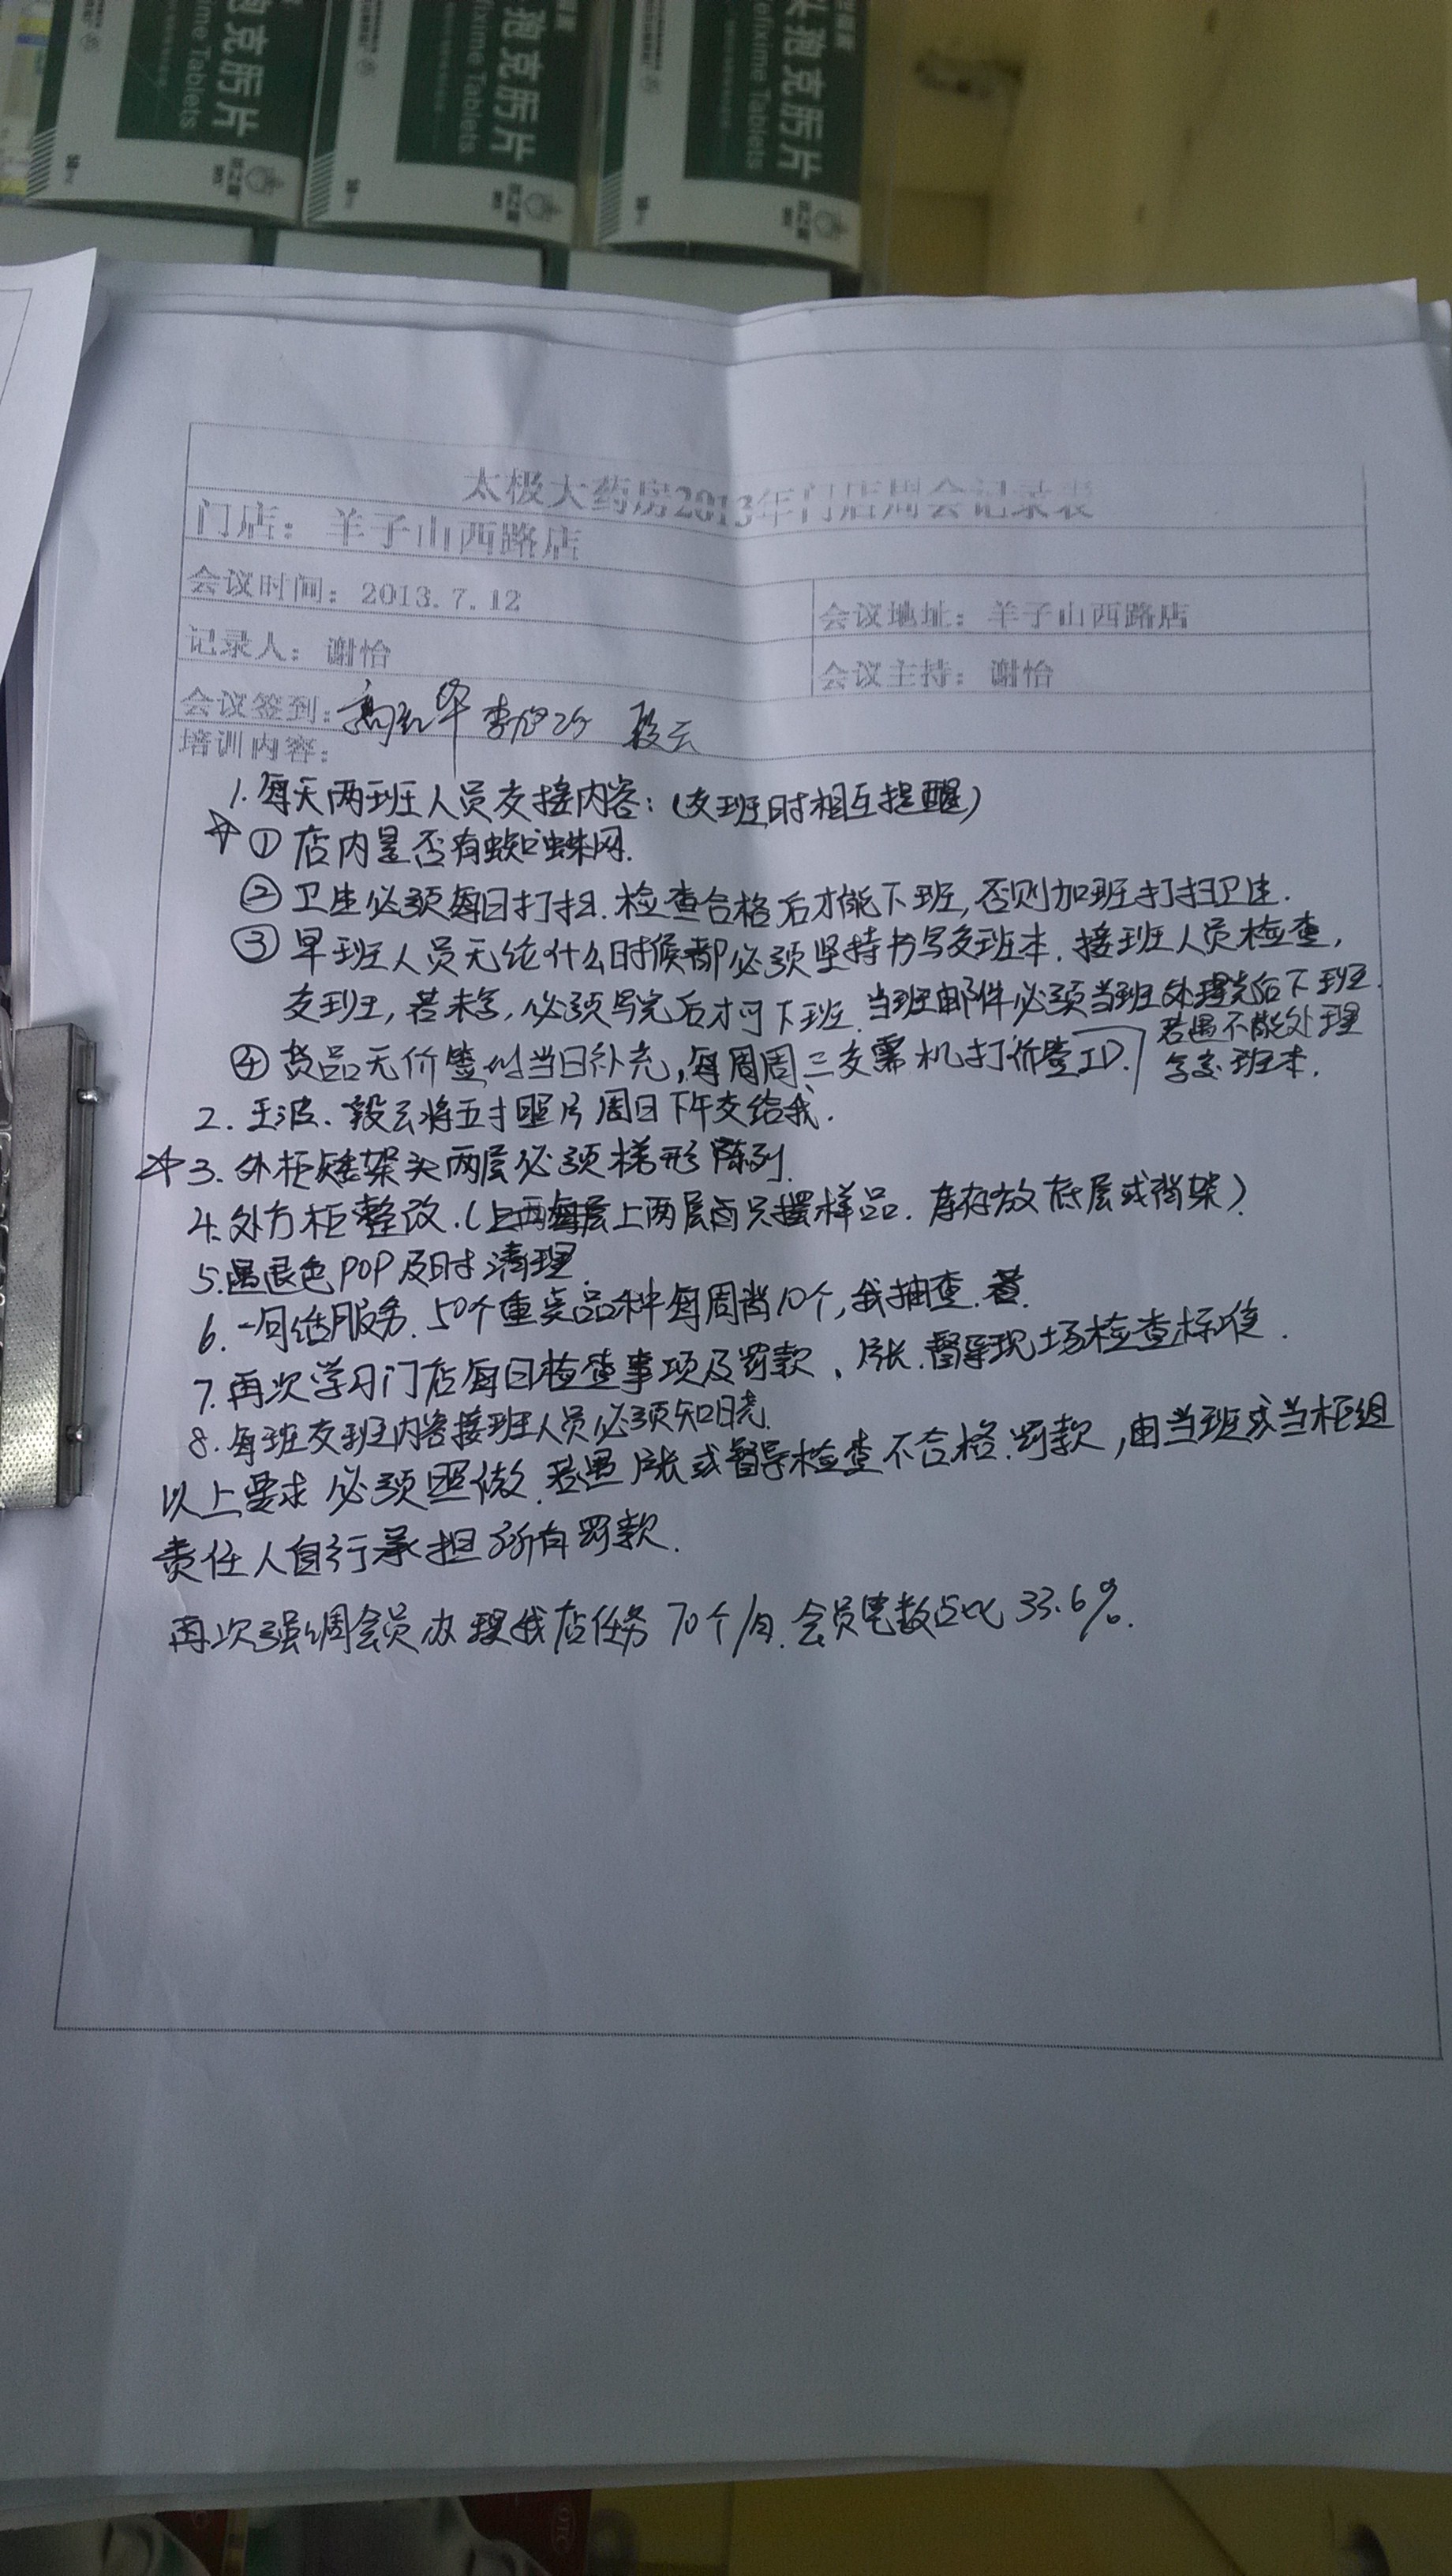 头孢克肟片
Cefixime Tablets
太极大药房2013年门店周会记录表
门店：羊子山西路店
会议时间：2013.7.12
会议地址：羊子山西路店
记录人：谢怡
会议主持：谢怡
会议签到：高红华 段云
培训内容：
1. 每天两班人员交接内容：(交班时相互提醒)
☆①店内是否有蜘蛛网.
②卫生必须每日打扫.检查合格后才能下班,否则加班打扫卫生.
③早班人员无论什么时候都必须坚持书写交班本.接班人员检查,
交班,若未写,必须写完后才可下班.当班邮件必须当班处理完后下班.
若遇不能处理
写交班本.
④货品无价签的当日补充,每周周三交需机打价签ID.
2. 王波、段云将五寸照片周日下午交给我.
☆3. 外柜矮架头两层必须梯形陈列.
4. 处方柜整改.(上两层只摆样品.库存放底层或背架)
5. 遇退色POP及时清理.
6. 一句话服务.50个重卖品种每周背10个,我抽查.
7. 再次学习门店每日检查事项及罚款、片长.督导现场检查标准.
8. 每班交班内容接班人员必须知晓.
以上要求必须照做.若遇片长或督导检查不合格.罚款,由当班或当柜组
责任人自行承担所有罚款.
再次强调会员办理我店任务70个/月.会员笔数占比33.6%.
OTC